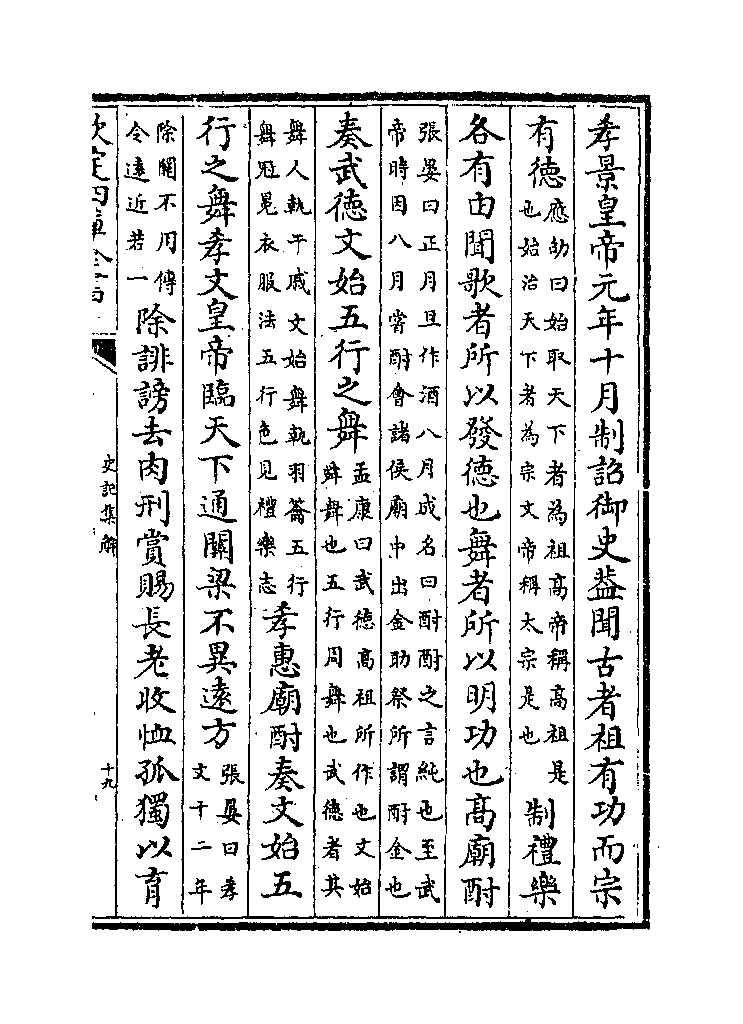 孝景皇帝元年十月制詔御史葢聞古者祖有功而宗
有德應劭曰始取天下者為祖高帝稱高祖是也始治天下者為宗文帝稱太宗是也制禮樂
各有由聞歌者所以發德也舞者所以明功也高廟酎
張晏曰正月旦作酒八月成名曰酎酎之言純也至武帝時因八月嘗酎會諸侯廟中出金助祭所謂酎金也
奏武德文始五行之舞孟康曰武德高祖所作也文始舜舞也五行周舞也武德者其
舞人執干戚文始舞執羽籥五行舞冠冕衣服法五行色見禮樂志孝惠廟酎奏文始五
行之舞孝文皇帝臨天下通關梁不異逺方張晏曰孝文十二年
除關不用傳令逺近若一除誹謗去肉刑賞賜長老收恤孤獨以育
欽定四庫全書
史記集解
十九